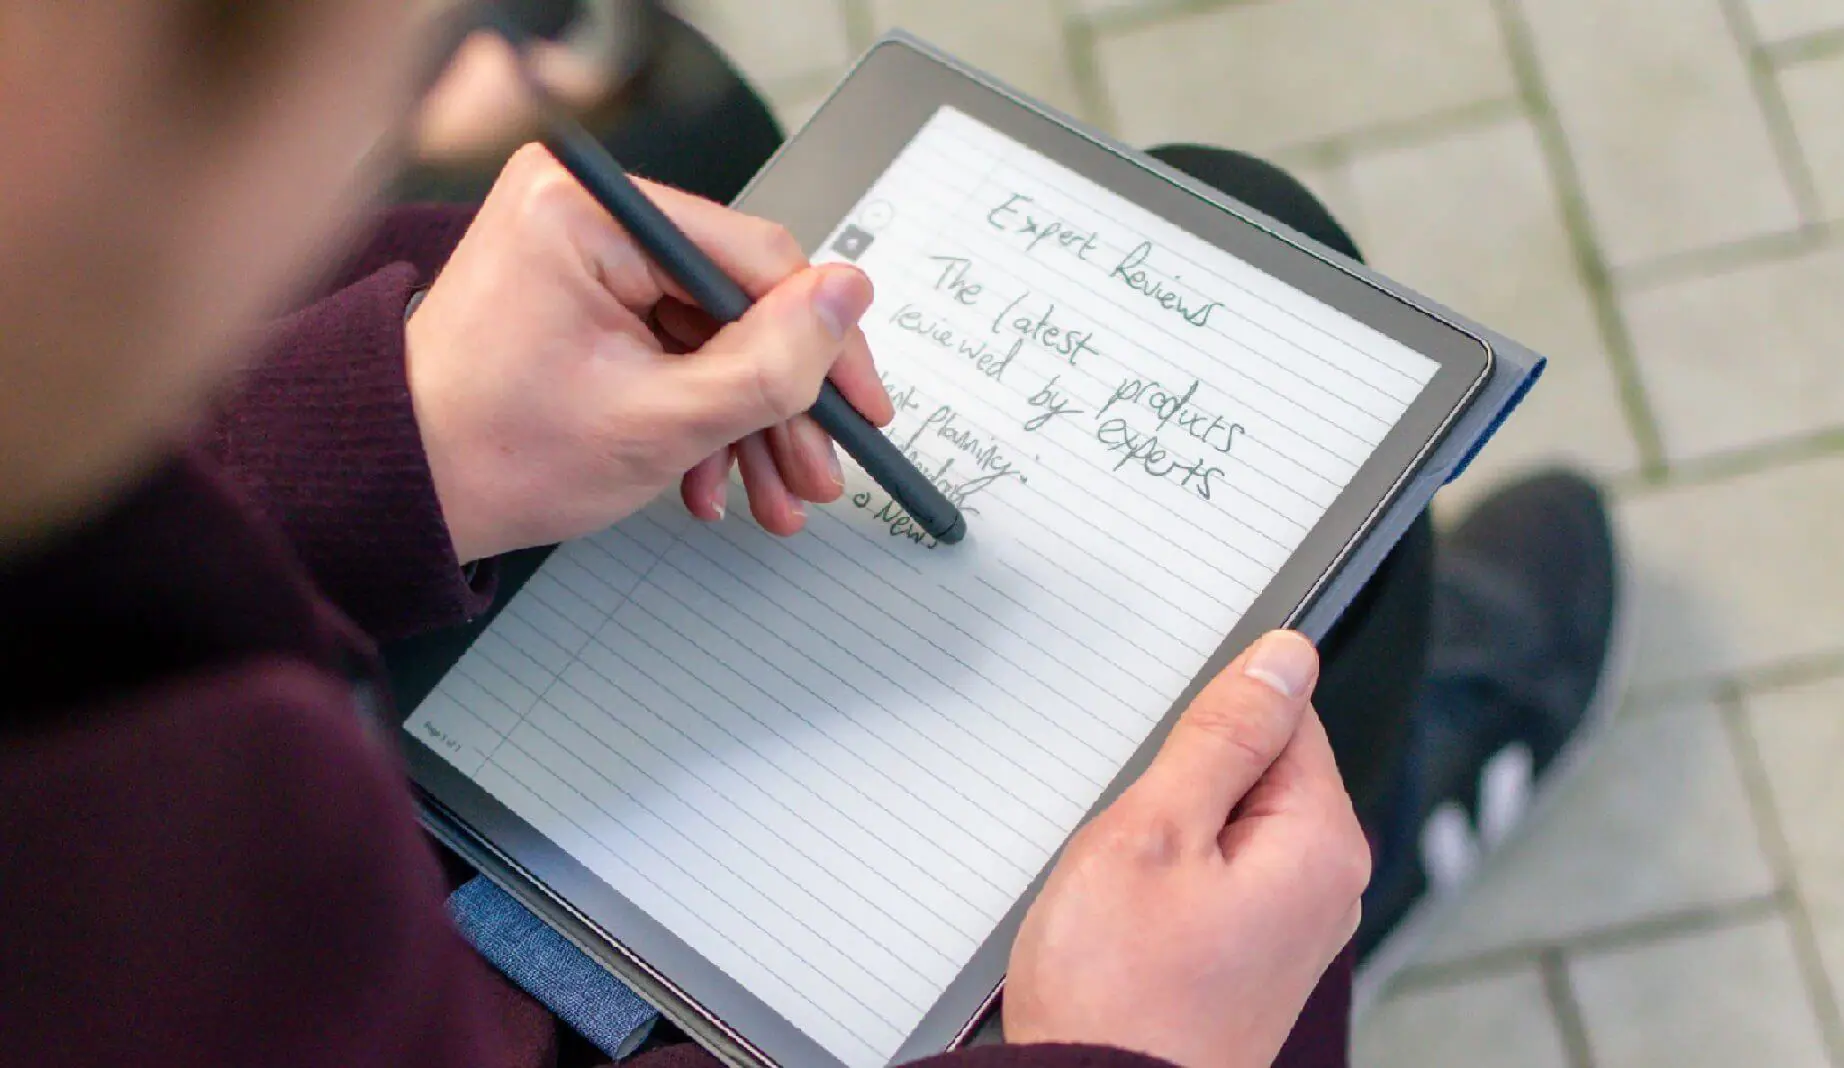 Expert Reviews
The latest products
reviewed by experts
Planning:
News
Page 1 of 1